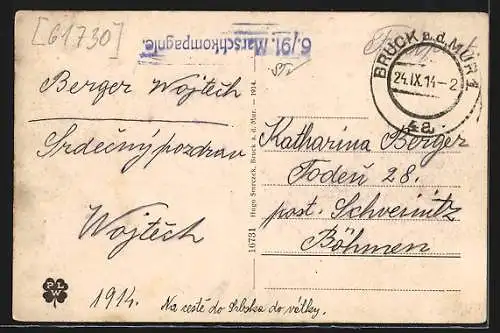 [61730]
6./91. Marschkompagnie.
BRUCK a. d. MUR 1
24. IX. 14-2
4a
Berger Wojtěch
Srdečný pozdrav
Wojtěch
1914.
Na cestě do Srbska do války.
Katharina Berger
Todeň 28.
post. Schweinitz
Böhmen
16731 Hugo Smrczek, Bruck a. d. Mur. — 1914.
P L W